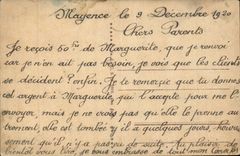 Mayence le 9 Décembre 1920
Chers Parents
Je reçois 50 frs de Marguerite, que je renvoi
car je n'en ait pas besoin, je vois que les clients
se décident enfin. Je te remerçie que tu donnes
cet argent à Marguerite, qui l'accepte pour me l'
envoyer, mais je ne crois pas qu'elle le prenne au
trement, elle est tombée y'l a quelques jours, heureu
sement qu'il n'y a pas eu de suite. Au plaisir de
bientôt vous lire, je vous embrasse de tout mon cœur